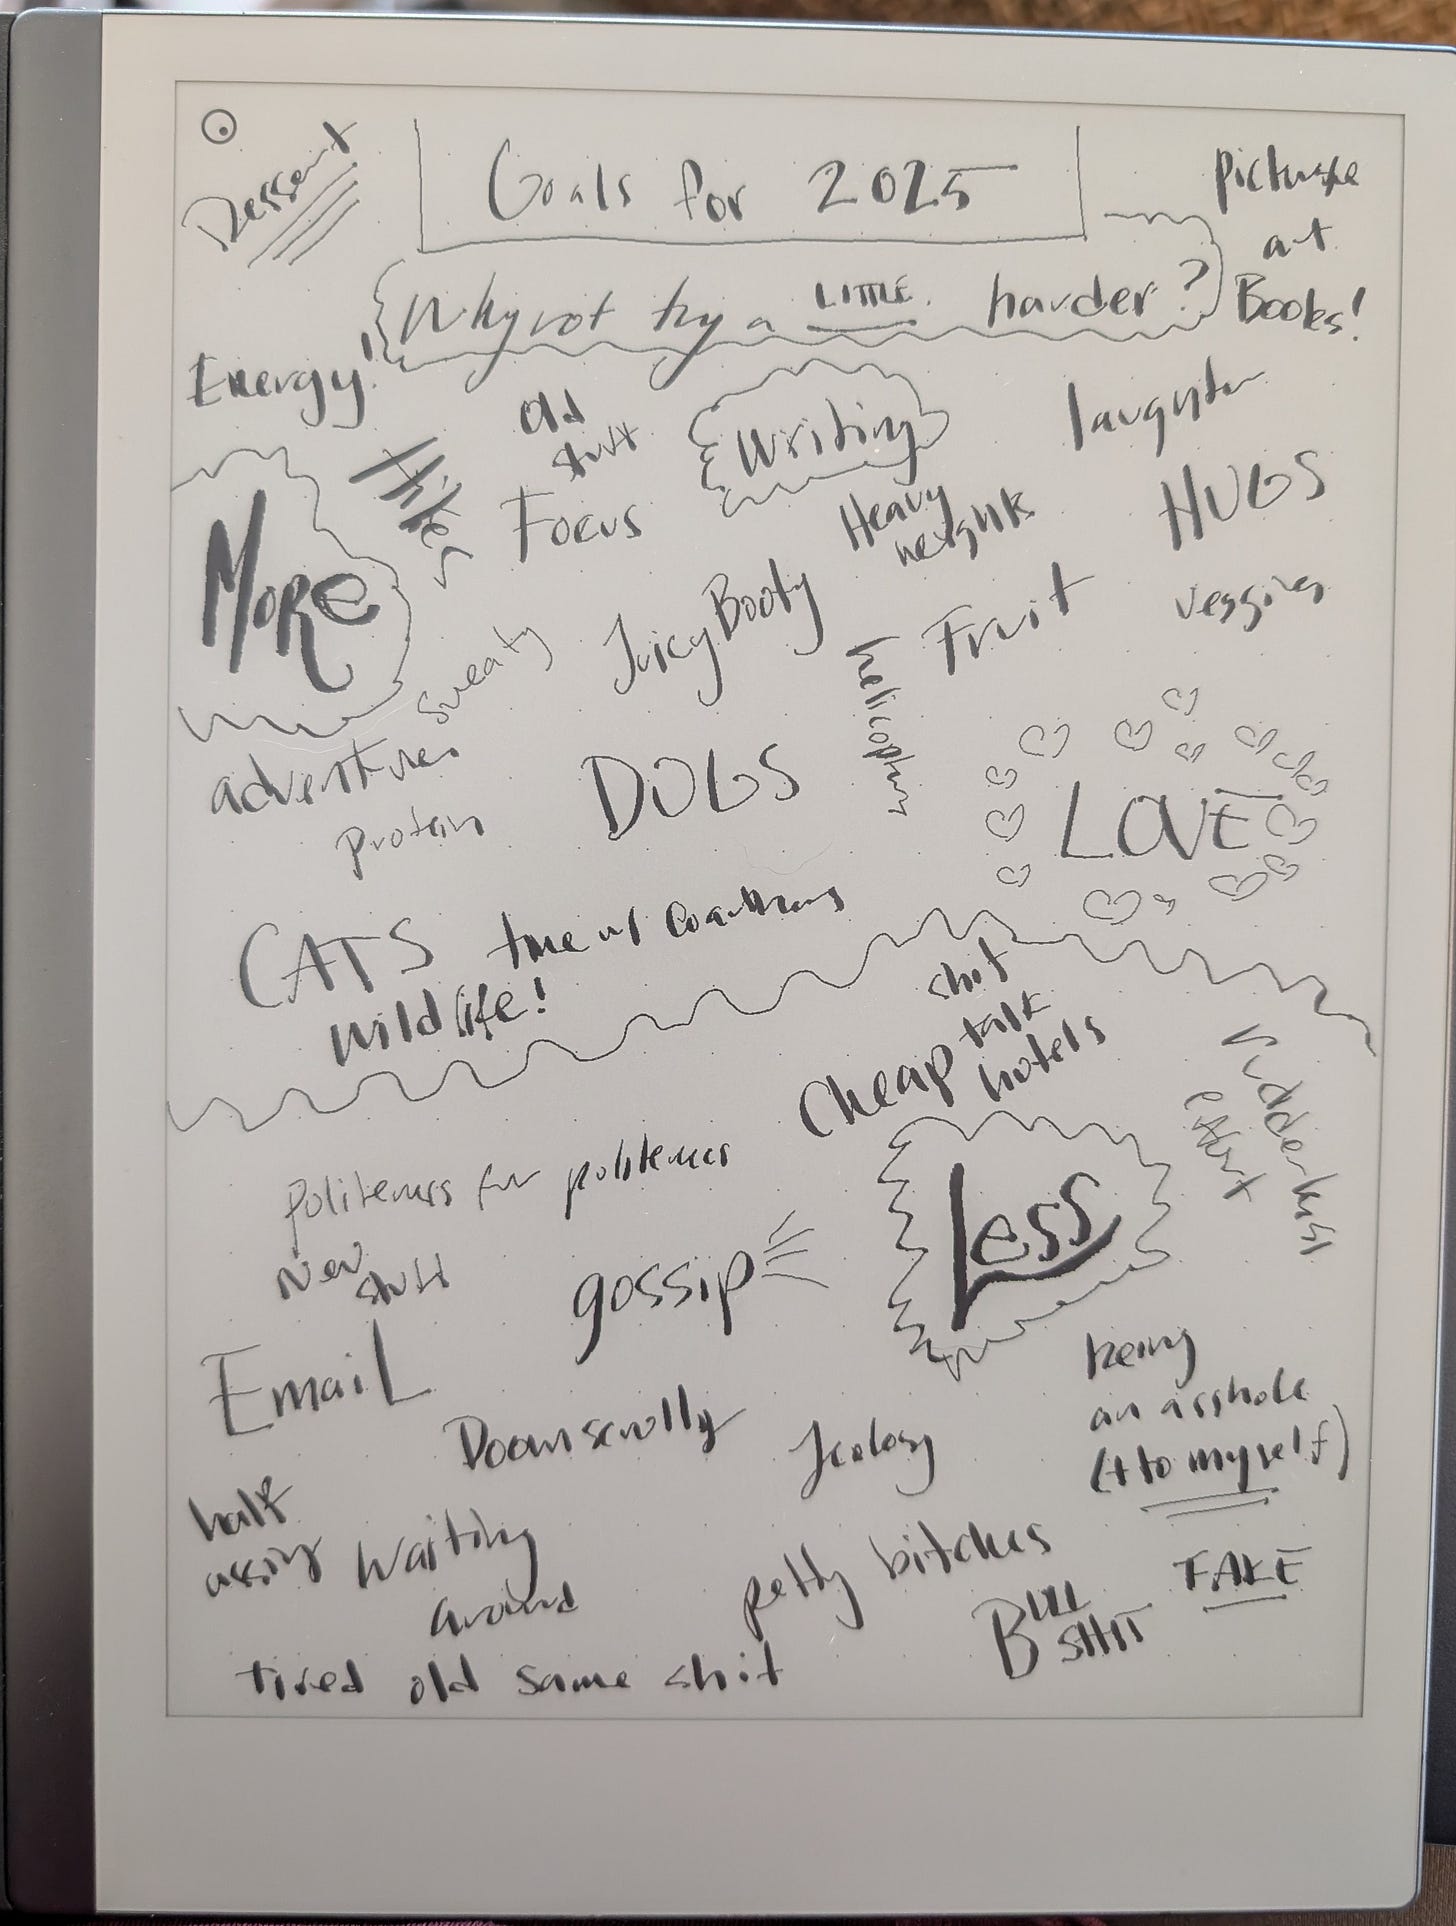 Dessert
Goals for 2025
picture
art
Books!
Why not try a LITTLE harder?
Energy!
Old
stuff
Writing
laughter
Hikes
Focus
Heavy
weights
HUGS
MORe
sweaty
Juicy Booty
Fruit
veggies
helicopters
adventures
protein
DOGS
LOVE
CATS
time w/
wildlife!
shit
talk
Cheap
hotels
rudderless
effort
Politeness for politeness
New
stuff
gossip
Less
EmaiL
Doomscrolly
being
an asshole
(+ to myself)
half
assing
Waiting
around
petty bitches
FAKE
BULL
SHIT
tired old same shit